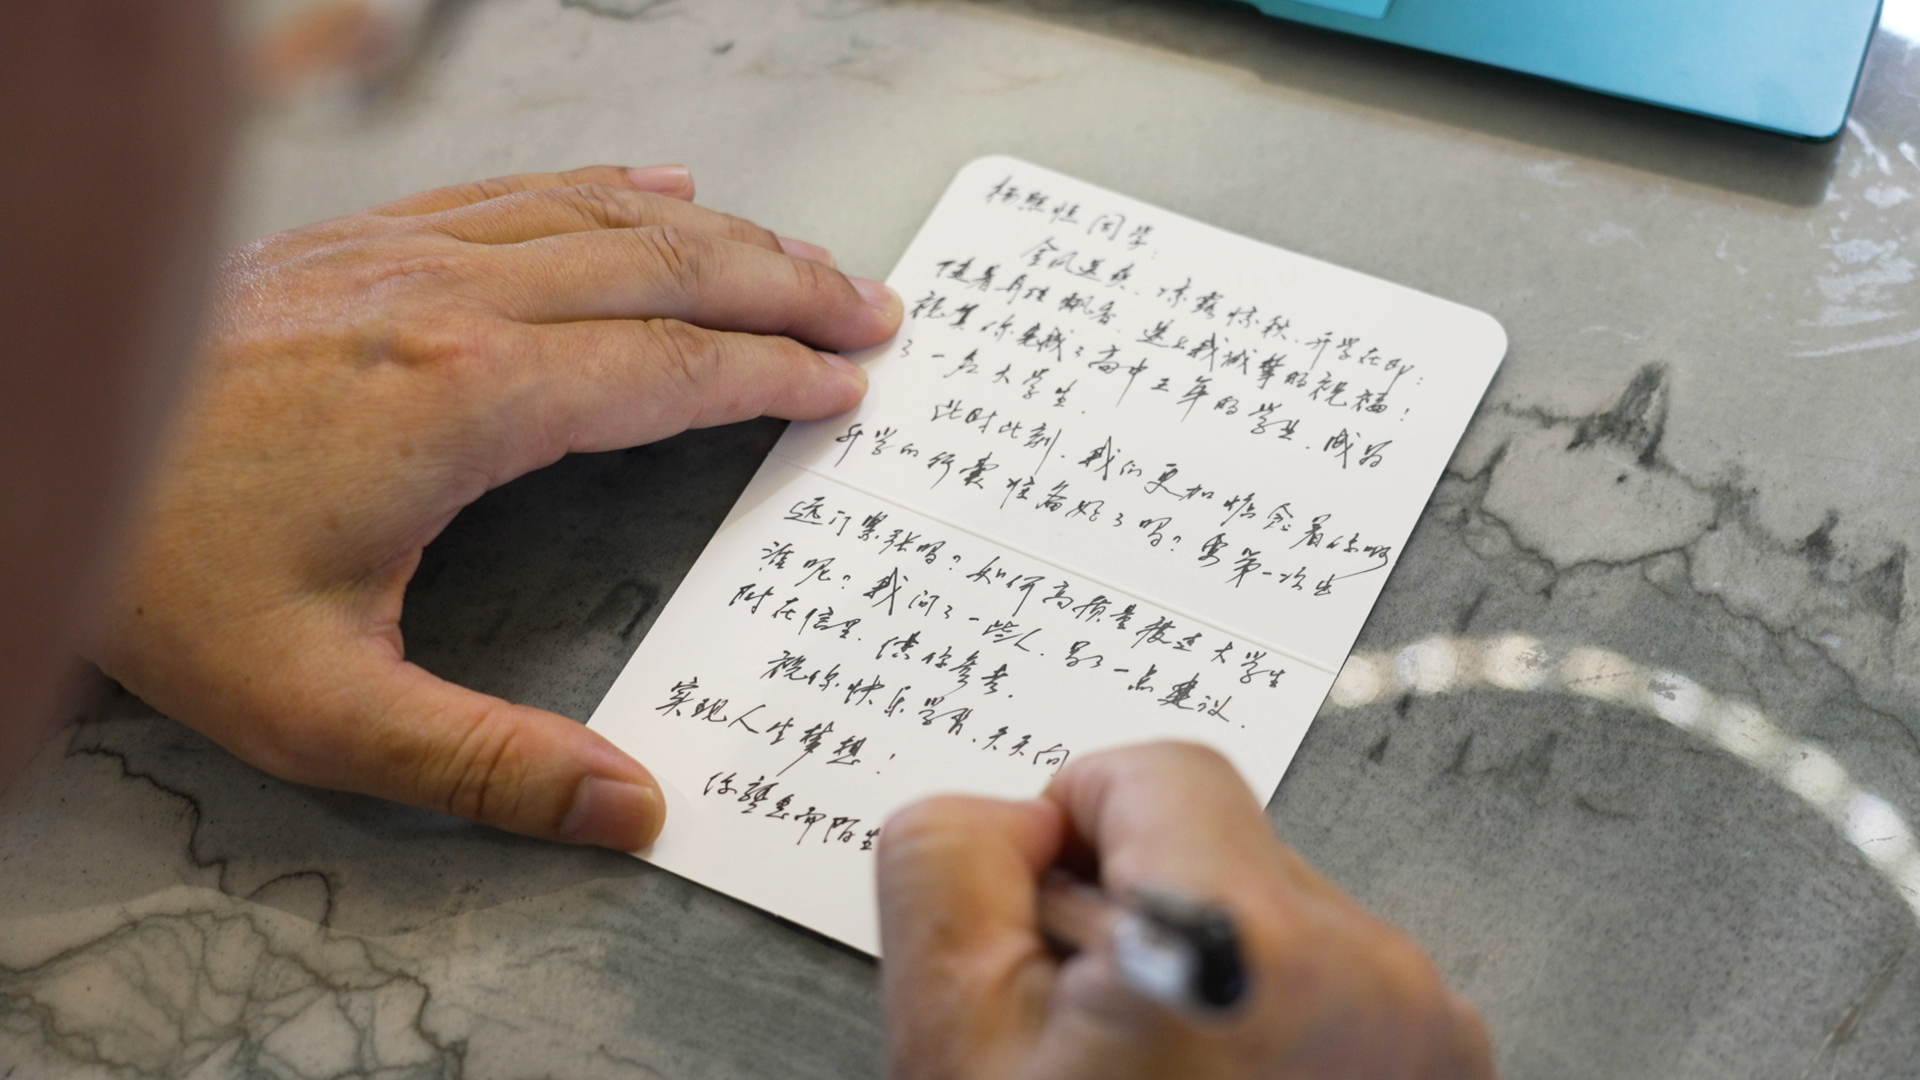 杨熙恒同学：
金风送爽、凉露惊秋、开学在即；
随着丹桂飘香，送上我诚挚的祝福！
祝贺你完成了高中三年的学业，成为
了一名大学生。
此时此刻，我们更加惦念着你啊
开学的行囊准备好了吗？要第一次出
远门紧张吗？如何高质量度过大学生
涯呢？我问了一些人，写了一点建议，
附在信里，供你参考。
祝你快乐学习，天天向
实现人生梦想！
你熟悉而陌生